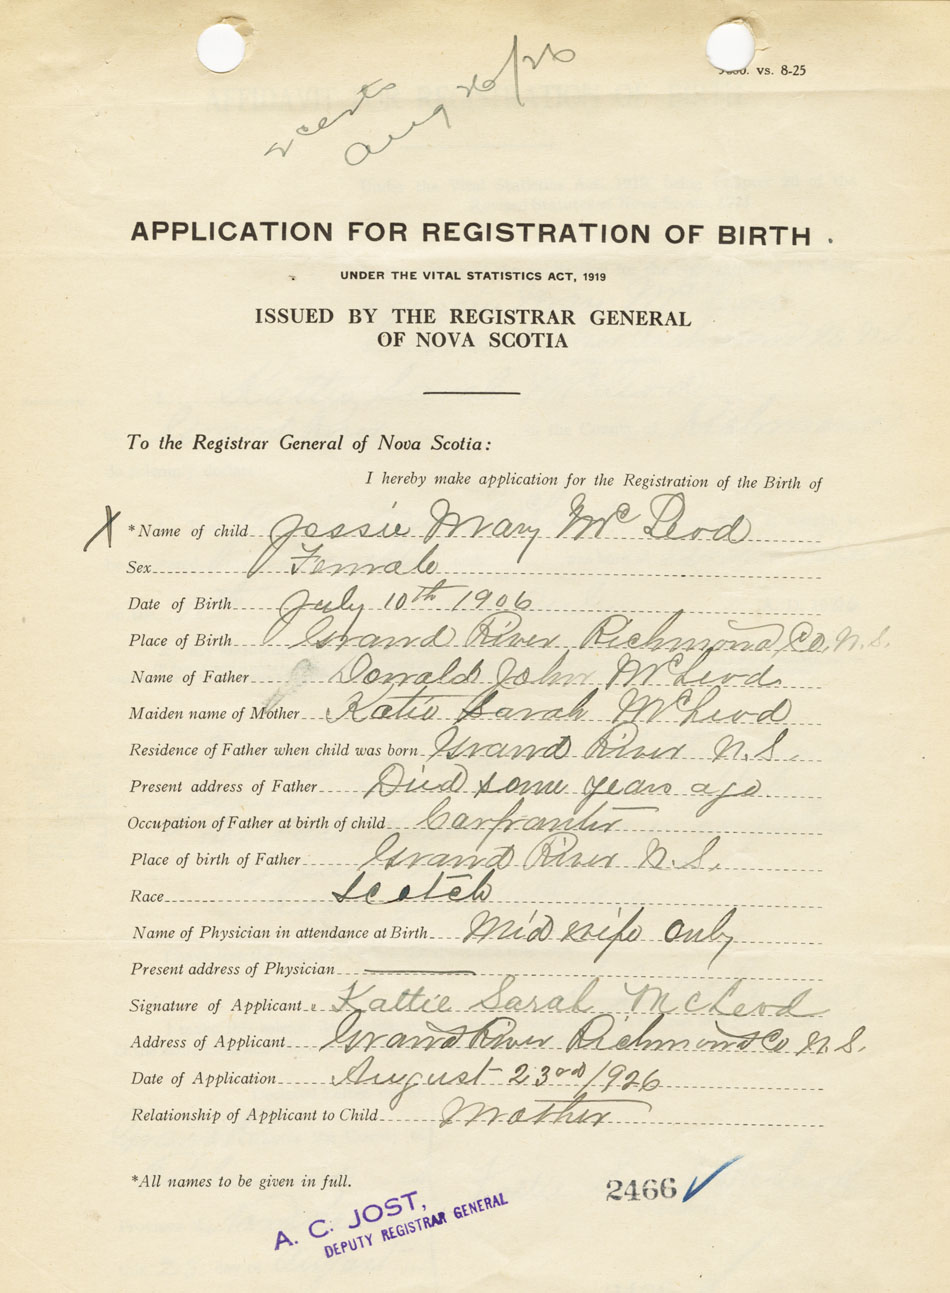 vs. 8-25
Aug 26/26
APPLICATION FOR REGISTRATION OF BIRTH.
UNDER THE VITAL STATISTICS ACT, 1919
ISSUED BY THE REGISTRAR GENERAL
OF NOVA SCOTIA
To the Registrar General of Nova Scotia:
I hereby make application for the Registration of the Birth of
X *Name of child Jessie Mary McLeod
Sex Female
Date of Birth July 10th 1906
Place of Birth Grand River Richmond Co. N.S.
Name of Father Donald John McLeod
Maiden name of Mother Katie Sarah McLeod
Residence of Father when child was born Grand River N.S.
Present address of Father Died some years ago
Occupation of Father at birth of child Carpranter
Place of birth of Father Grand River N.S.
Race Scotch
Name of Physician in attendance at Birth Midwife only
Present address of Physician
Signature of Applicant Kattie Sarah McLeod
Address of Applicant Grand River Richmond Co N.S.
Date of Application August 23rd/1926
Relationship of Applicant to Child Mother
*All names to be given in full.
2466
A. C. JOST,
DEPUTY REGISTRAR GENERAL